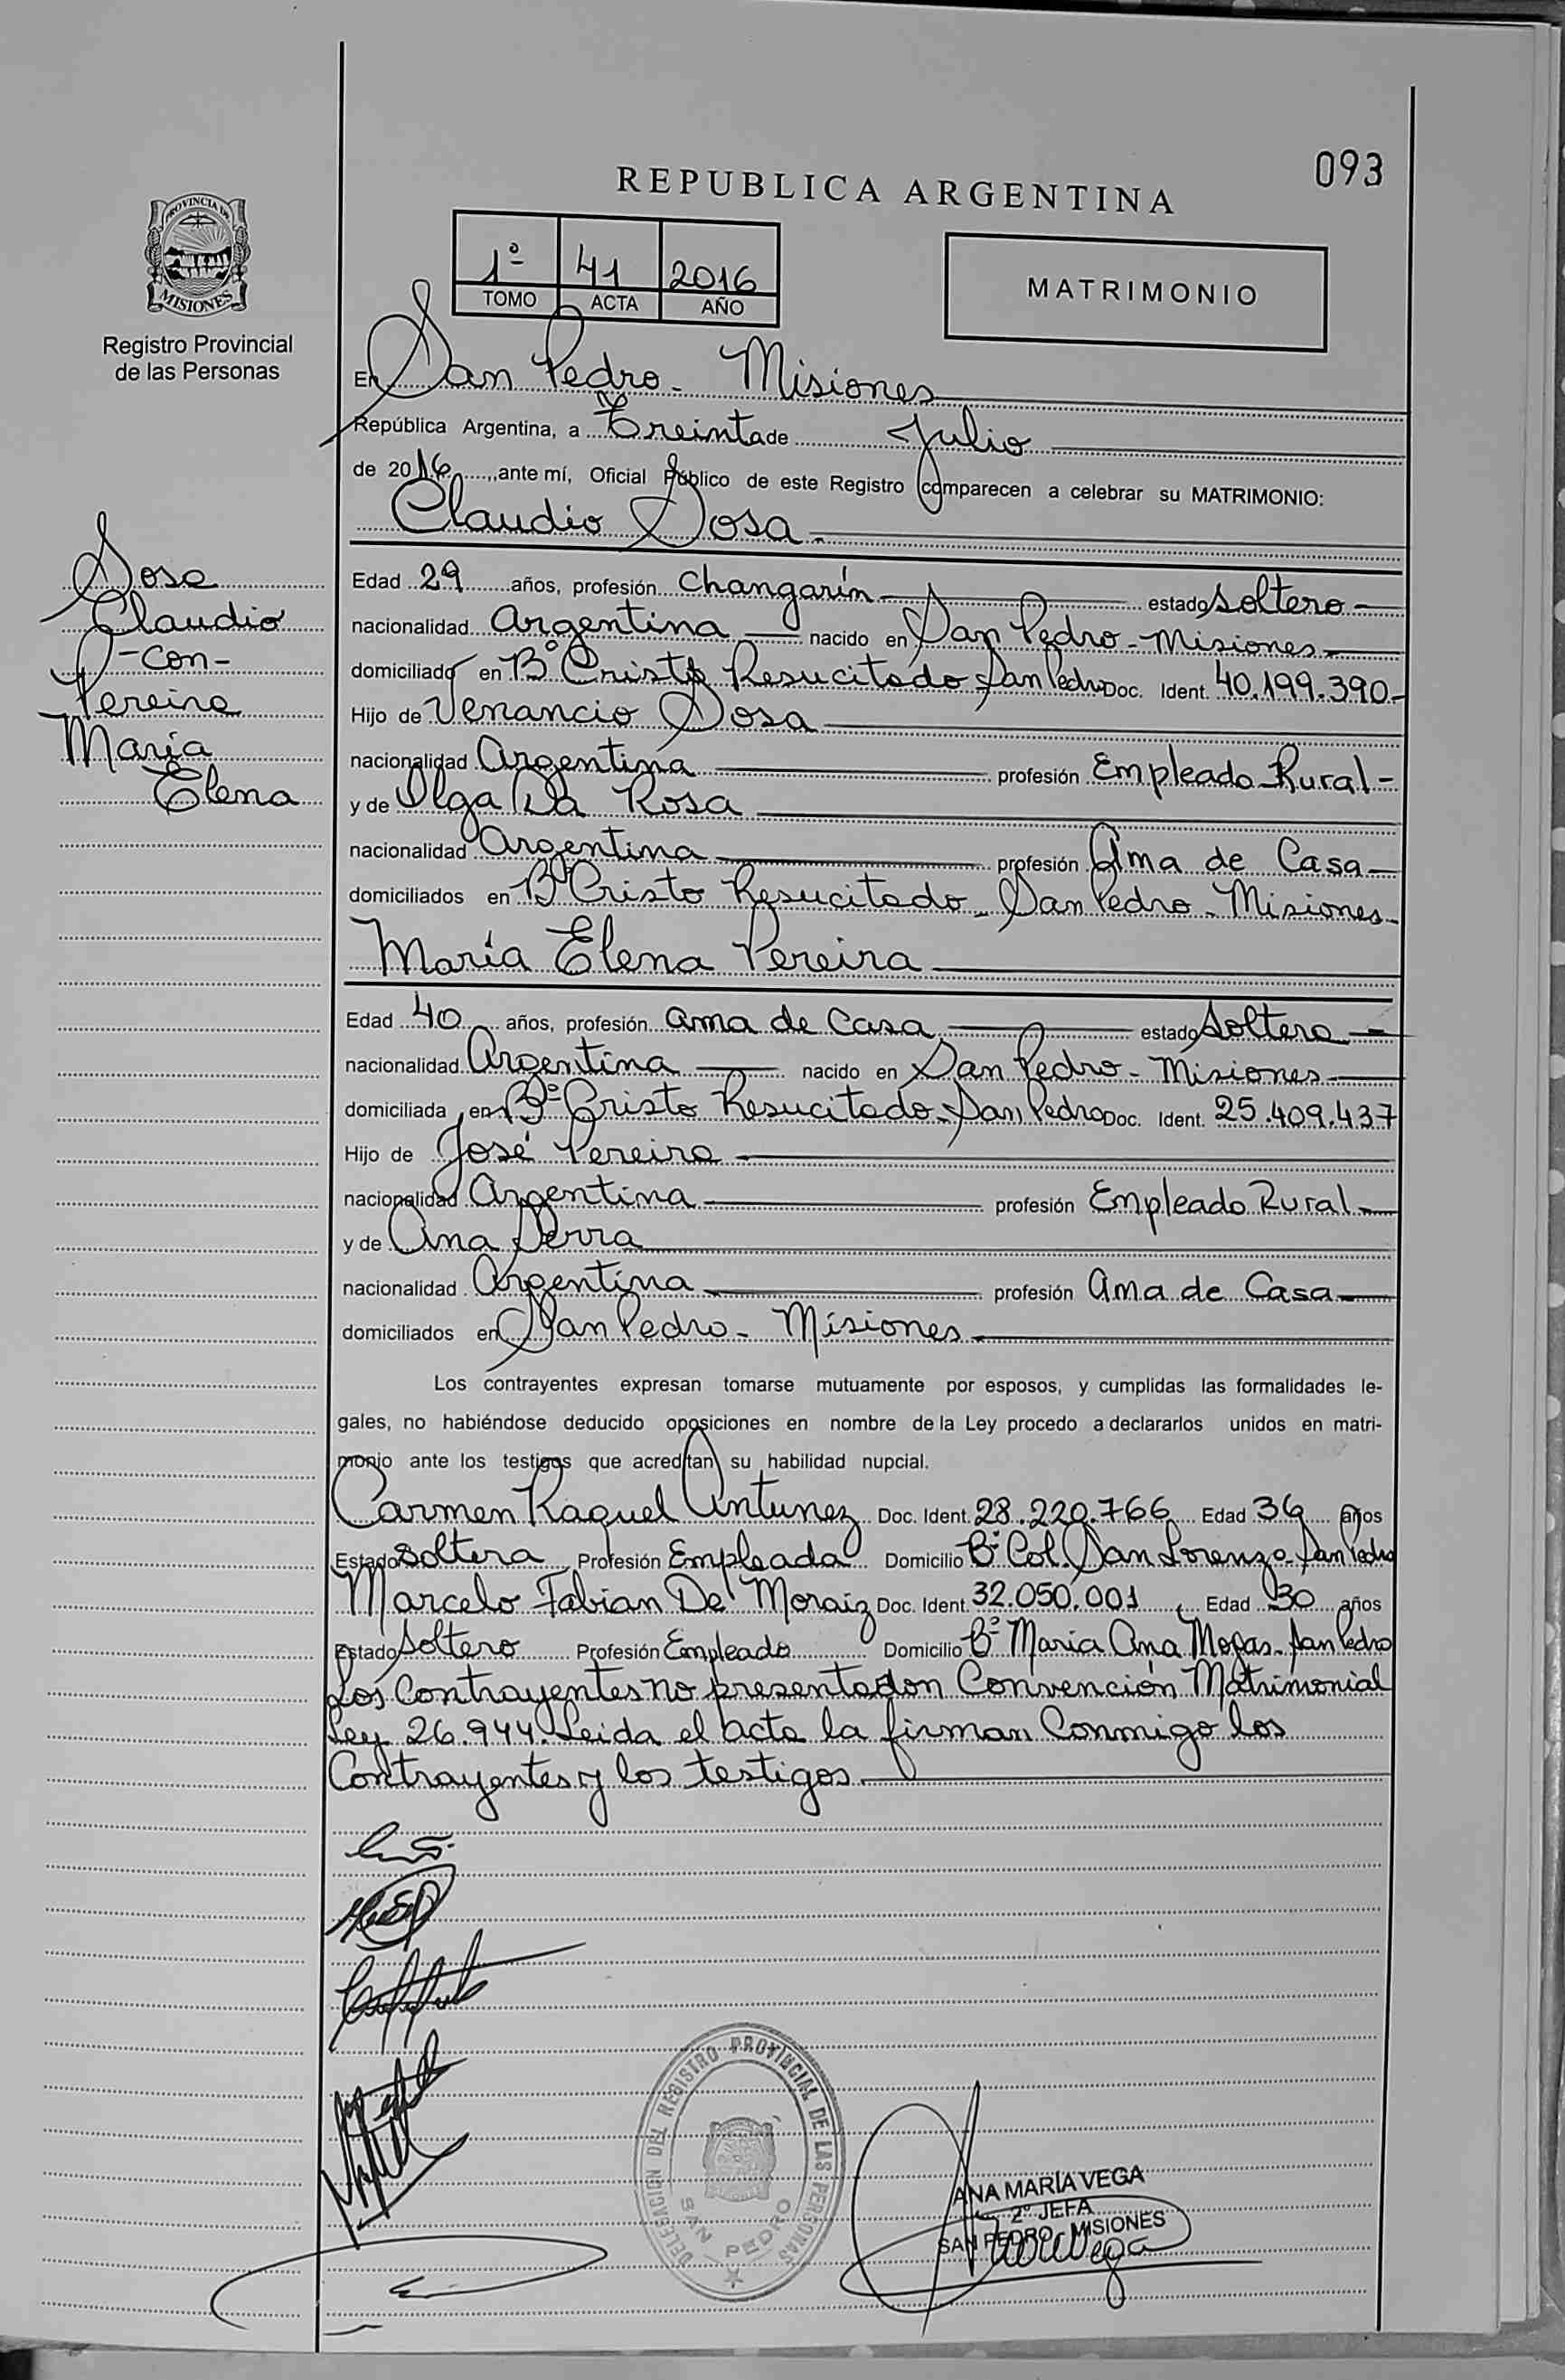 093
REPUBLICA ARGENTINA
PROVINCIA DE
MISIONES
Registro Provincial
de las Personas
1º 41 2016
TOMO ACTA AÑO
MATRIMONIO
En San Pedro - Misiones
República Argentina, a Treinta de Julio
de 2016, ante mí, Oficial Público de este Registro comparecen a celebrar su MATRIMONIO:
Claudio Sosa.
Sosa
Claudio
-con-
Pereira
María
Elena
Edad 29 años, profesión Changarín estado Soltero
nacionalidad Argentina nacido en San Pedro - Misiones
domiciliado en Bº Cristo Resucitado San Pedro Doc. Ident. 40.199.390-
Hijo de Venancio Sosa
nacionalidad Argentina profesión Empleado Rural -
y de Olga Da Rosa
nacionalidad Argentina profesión Ama de Casa
domiciliados en Bº Cristo Resucitado - San Pedro - Misiones
María Elena Pereira
Edad 40 años, profesión ama de Casa estado Soltera
nacionalidad Argentina nacido en San Pedro - Misiones
domiciliada en Bº Cristo Resucitado - San Pedro Doc. Ident. 25.409.437
Hijo de José Pereira
nacionalidad Argentina profesión Empleado Rural
y de Ana Serra
nacionalidad Argentina profesión Ama de Casa
domiciliados en San Pedro - Misiones
Los contrayentes expresan tomarse mutuamente por esposos, y cumplidas las formalidades le-
gales, no habiéndose deducido oposiciones en nombre de la Ley procedo a declararlos unidos en matri-
monio ante los testigos que acreditan su habilidad nupcial.
Carmen Raquel Antunez Doc. Ident. 28.220.766 Edad 36 años
Estado Soltera Profesión Empleada Domicilio Bº Col. San Lorenzo - San Pedro
Marcelo Fabian De Moraiz Doc. Ident. 32.050.001 Edad 30 años
Estado Soltero Profesión Empleado Domicilio Bº Maria Ana Mogas - San Pedro
Los Contrayentes no presentadon Convención Matrimonial
Ley 26.944. Leida el acta la firman Conmigo los
Contrayentes y los testigos
DELEGACION DEL REGISTRO PROVINCIAL DE LAS PERSONAS
SAN PEDRO
ANA MARÍA VEGA
2º JEFA
SAN PEDRO - MISIONES